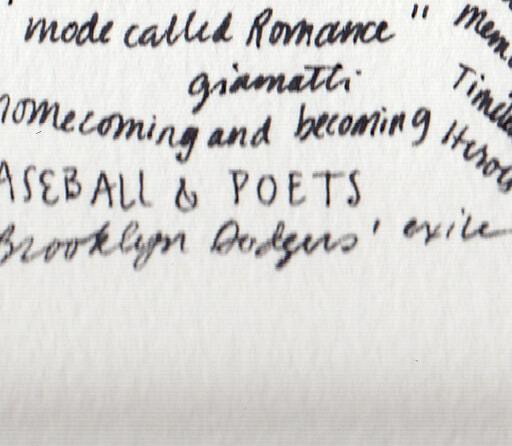 mode called Romance"
giamatti
homecoming and becoming
BASEBALL & POETS
Brooklyn Dodgers' exile